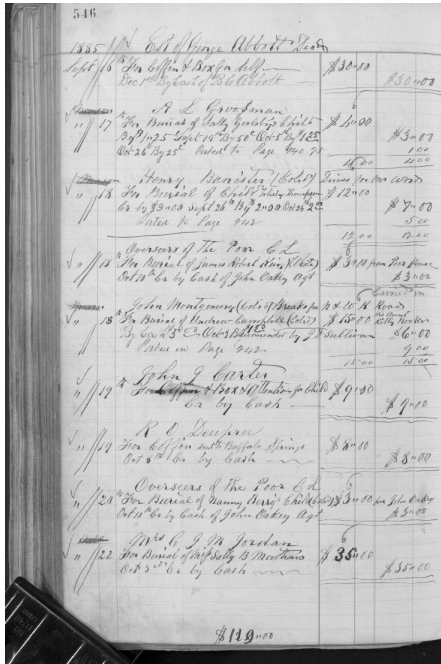 546
1885 Est of George Abbott Decd
Sept 8 For Coffin & Box for self $30.00
Dec 1st By Cash of B C Abbott $30.00
A L Groosman
" 17 For Burial of Sally Child $4.00
Sept 19th By 50c Oct 5th By 1.25 $3.00
Oct 26th By 25c Posted to Page 940 1.00
4.00 4.00
Henry Banister (Cold) Lives for Mr Wood
" 18 For Burial of Child $12.00
Cr by $3.00 Sept 26th By 2.00 Oct 24th $7.00
Posted to Page 942 5.00
12.00 12.00
Overseers of the Poor C L
" 18 For Burial of James Robert King (White) $3.00 from Poor House
Oct 10th Cr by Cash of John Oakey Agt $3.00
John Montgomery (Cold) Breaks for N & W R Road
" 18 For Burial of Campbell (Cold) $15.00
By Cr Oct 3 by J Sullivan $6.00
Posted in Page 942 9.00
15.00 15.00
John J Carter
" 19 For Coffin & Box & Attention for Child $9.00
Cr by Cash $9.00
R V Dupree
" 19 For Coffin sent to Buffalo Springs $8.00
Oct 5th Cr by Cash $8.00
Overseers of the Poor C d
" 20 For Burial of Nanny Berry Child (Cold) $3.00 per John Oakey
Oct 10th Cr by Cash of John Oakey Agt $3.00
Mrs C J M Jordan
" 22 For Burial of Miss Sally B $35.00
Oct 3rd Cr by Cash $35.00
$119.00